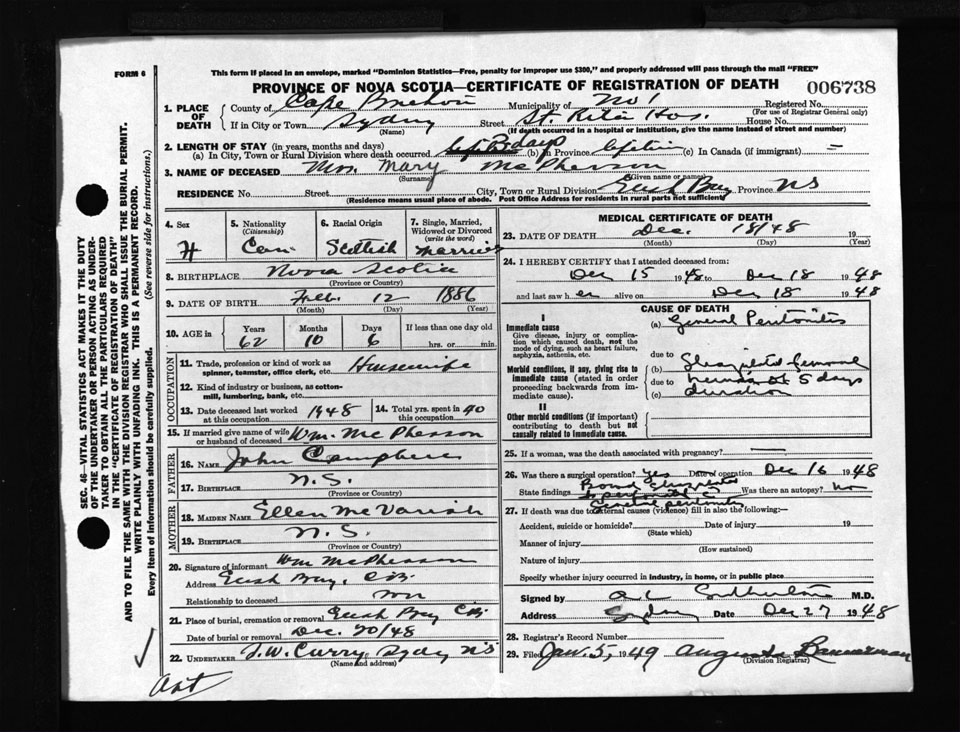 FORM 6
This form if placed in an envelope, marked "Dominion Statistics—Free, penalty for improper use $300," and properly addressed will pass through the mail "FREE"
PROVINCE OF NOVA SCOTIA—CERTIFICATE OF REGISTRATION OF DEATH 006738
1. PLACE OF DEATH County of Cape Breton Municipality of No 1 Registered No.
(For use of Registrar General only)
If in City or Town Sydney Street St. Rita Hos. House No.
(Name) (If death occurred in a hospital or institution, give the name instead of street and number)
2. LENGTH OF STAY (in years, months and days)
(a) In City, Town or Rural Division where death occurred 3 days (b) in Province lifetime (c) In Canada (if immigrant) —
3. NAME OF DECEASED Mrs. Mary McPherson
(Surname) (Given name or names)
RESIDENCE No. Street City, Town or Rural Division Bay Province NS
(Residence means usual place of abode. Post Office Address for residents in rural parts not sufficient)
4. Sex
5. Nationality (Citizenship) Can
6. Racial Origin Scottish
7. Single, Married, Widowed or Divorced (write the word) Married
8. BIRTHPLACE Nova Scotia
(Province or Country)
9. DATE OF BIRTH Feb. 12 1886
(Month) (Day) (Year)
10. AGE in Years Months Days If less than one day old
62 10 6 hrs. or min.
OCCUPATION
11. Trade, profession or kind of work as spinner, teamster, office clerk, etc. Housewife
12. Kind of industry or business, as cotton-mill, lumbering, bank, etc.
13. Date deceased last worked at this occupation 1948 14. Total yrs. spent in this occupation 40
15. If married give name of wife or husband of deceased Wm. McPherson
FATHER
16. NAME John Campbell
17. BIRTHPLACE N.S.
MOTHER
18. MAIDEN NAME Ellen McVarish
19. BIRTHPLACE N.S.
(Province or Country)
20. Signature of informant Wm McPherson
Address Bay, C.B.
Relationship to deceased
21. Place of burial, cremation or removal Bay C.B.
Date of burial or removal Dec. 20/48
22. UNDERTAKER T.W. Curry, Sydney NS
(Name and address)
MEDICAL CERTIFICATE OF DEATH
23. DATE OF DEATH Dec. 18/48 19
(Month) (Day) (Year)
24. I HEREBY CERTIFY that I attended deceased from:
Dec 15 1948 to Dec 18 1948
and last saw her alive on Dec 18 1948
CAUSE OF DEATH
I
Immediate cause
Give disease, injury or complication which caused death, not the mode of dying, such as heart failure, asphyxia, asthenia, etc.
(a) General Peritonitis
due to
Morbid conditions, if any, giving rise to immediate cause (stated in order proceeding backwards from immediate cause).
(b) Strangulated femoral
due to hernia of 5 days
(c) duration
II
Other morbid conditions (if important) contributing to death but not causally related to immediate cause.
25. If a woman, was the death associated with pregnancy? —
26. Was there a surgical operation? Yes Date of operation Dec 16 1948
State findings Bowel Was there an autopsy? No
27. If death was due to external causes (violence) fill in also the following:—
Accident, suicide or homicide? Date of injury 19
(State which)
Manner of injury
(How sustained)
Nature of injury
Specify whether injury occurred in industry, in home, or in public place
Signed by Sutherland M.D.
Address Sydney Date Dec 27 1948
28. Registrar's Record Number
29. Filed Jan. 5, 1949 Augusta Bannerman
(Division Registrar)
SEC. 46—VITAL STATISTICS ACT MAKES IT THE DUTY OF THE UNDERTAKER OR PERSON ACTING AS UNDERTAKER TO OBTAIN ALL THE PARTICULARS REQUIRED IN THE "CERTIFICATE OF REGISTRATION OF DEATH" AND TO FILE THE SAME WITH THE DIVISION REGISTRAR WHO SHALL ISSUE THE BURIAL PERMIT.
WRITE PLAINLY WITH UNFADING INK. THIS IS A PERMANENT RECORD.
Every item of information should be carefully supplied. (See reverse side for instructions.)